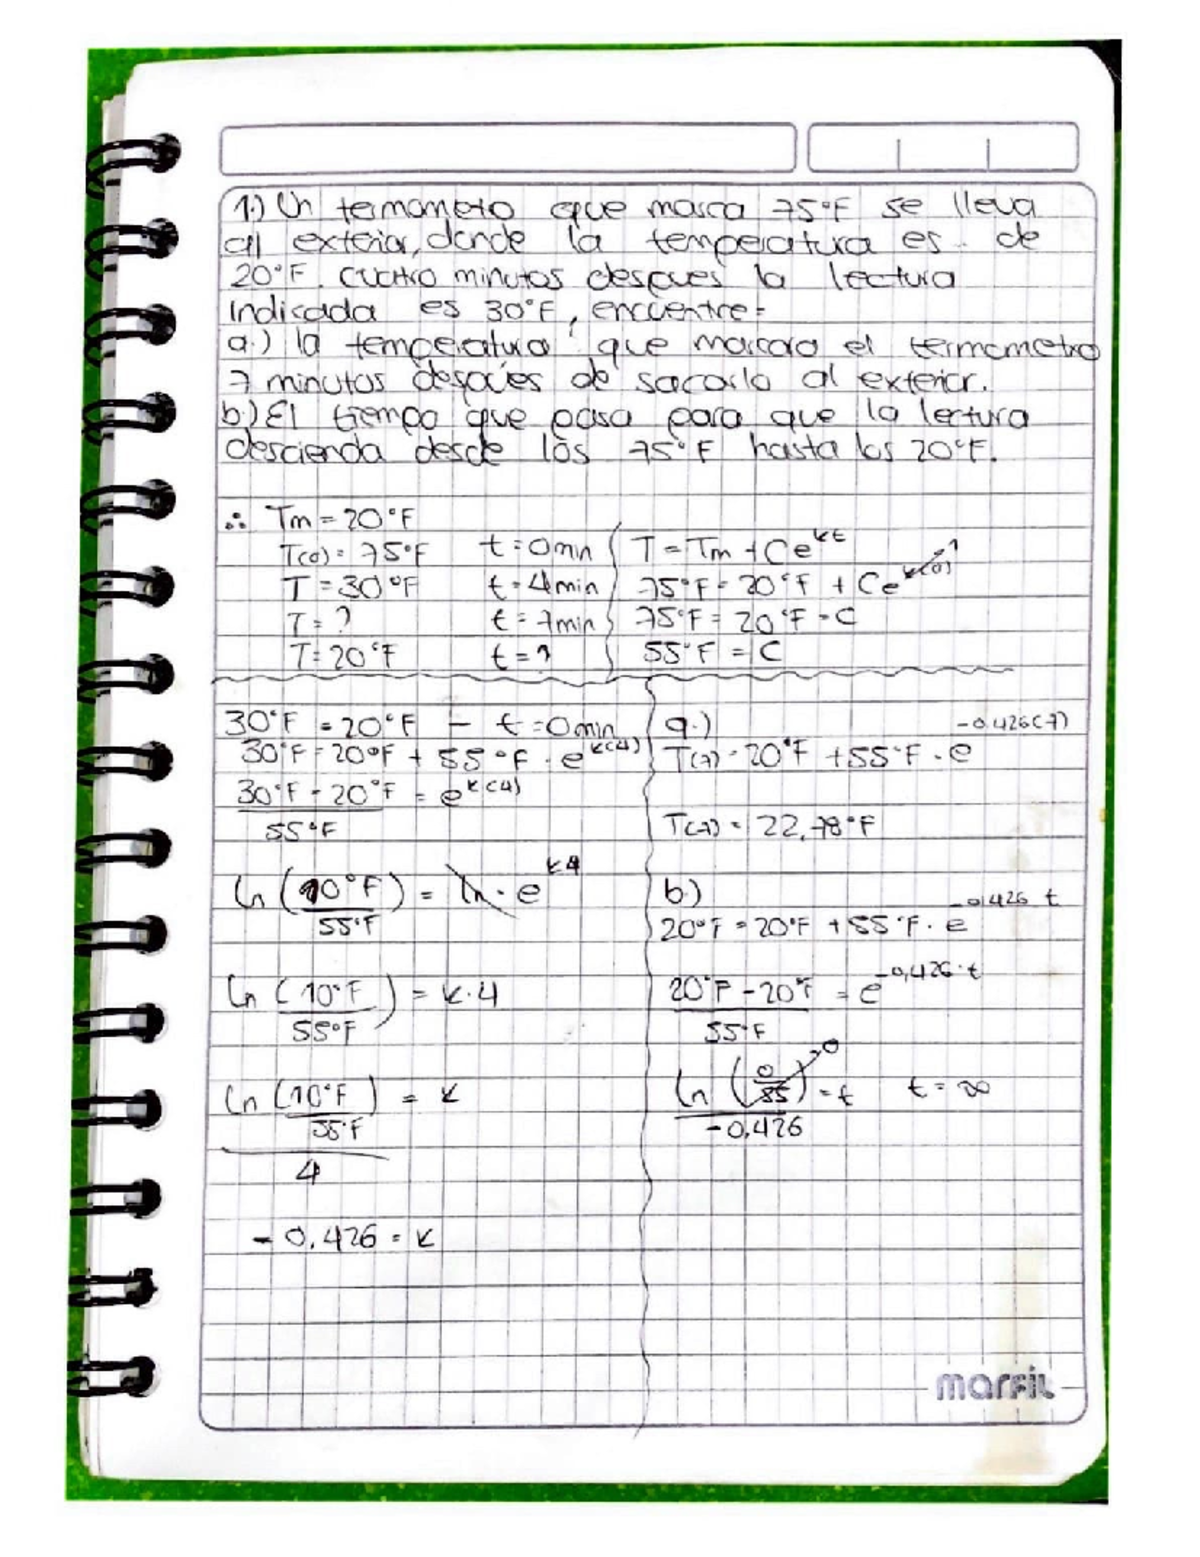 1.) Un termometro que marca 75°F se lleva
al exterior, donde la temperatura es de
20°F. cuatro minutos despues la lectura
Indicada es 30°F, encuentre=
a.) la temperatura que marcara el termometro
7 minutos despues de sacarlo al exterior.
b.) El tiempo que pasa para que la lectura
descienda desde los 75°F hasta los 20°F.
∴ Tm = 20°F
T(0) = 75°F t = 0min
T = 30°F t = 4min
T = ? t = 7min
T = 20°F t = ?
T = Tm + Ce^kt
75°F = 20°F + Ce^k(0) → 1
75°F = 20°F - C
55°F = C
30°F = 20°F - t = 0min
30°F = 20°F + 55°F · e^k(4)
30°F - 20°F = e^k(4)
55°F
ln (10°F) = ln · e^k4
55°F
ln (10°F) = k · 4
55°F
ln (10°F) = k
55°F
4
- 0,426 = k
a.)
T(7) = 20°F + 55°F · e^-0,426(7)
T(7) = 22,78°F
b.)
20°F = 20°F + 55°F · e^-0,426 t
20°F - 20°F = e^-0,426·t
55°F
ln (0/55) → 0 = t t = ∞
-0,426
marfil